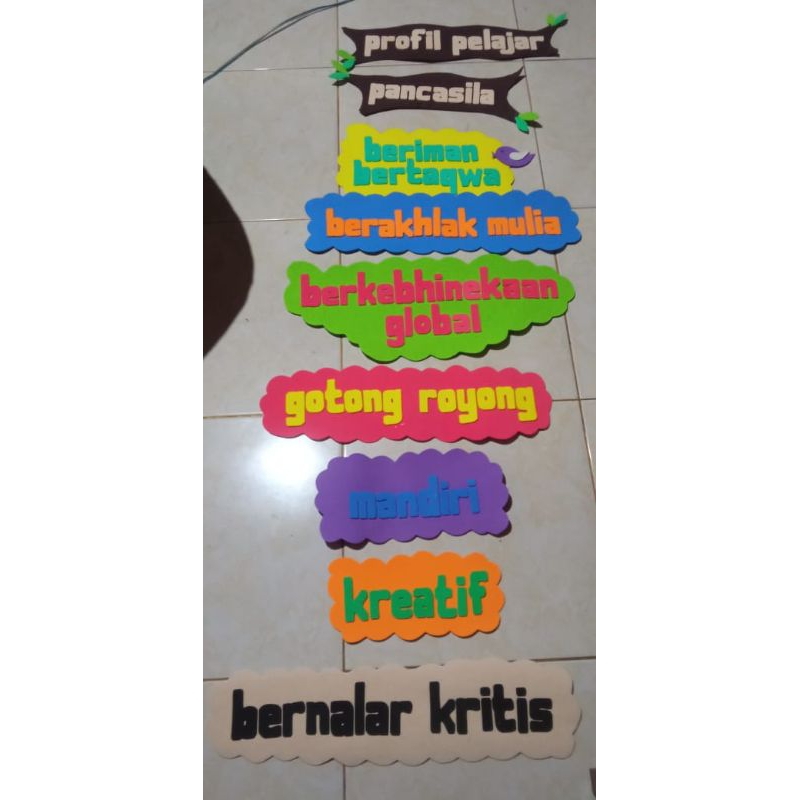 profil pelajar
pancasila
beriman
bertaqwa
berakhlak mulia
berkebhinekaan
global
gotong royong
mandiri
kreatif
bernalar kritis